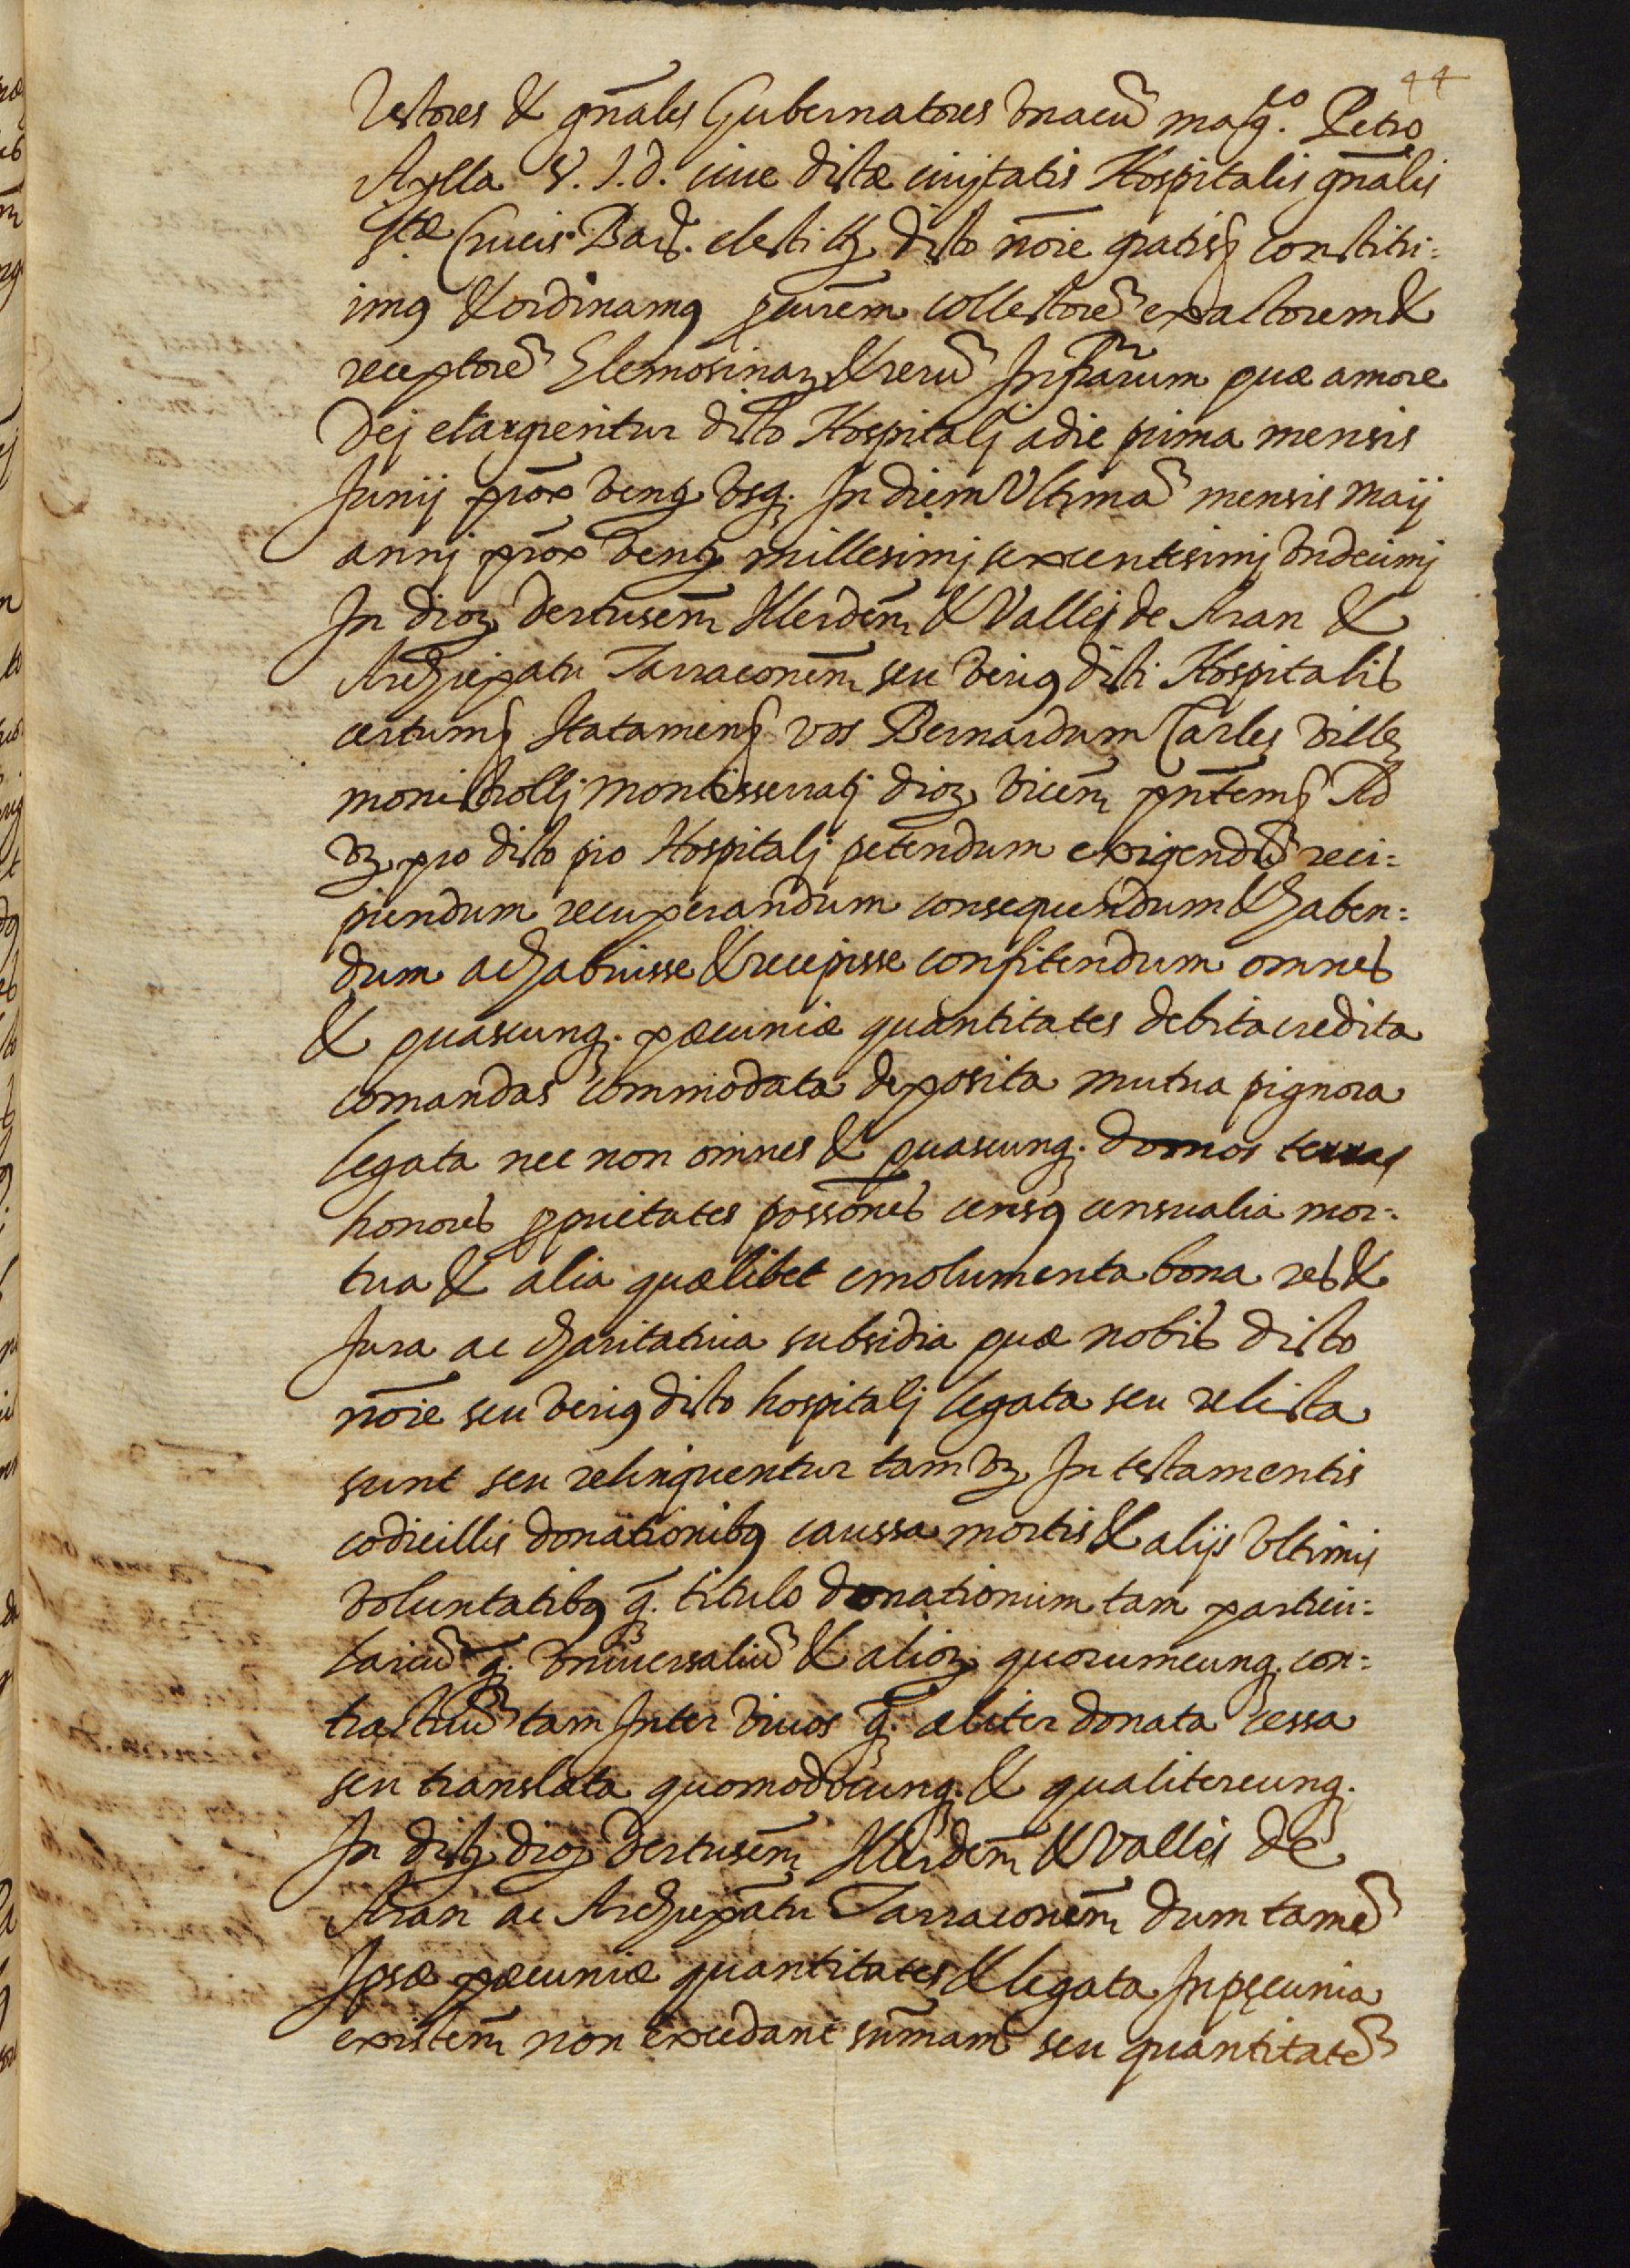 44
Rectores & gn̄ales Gubernatores Vnacū magco. Petro
Aylla V. J. d. ciue dictæ ciujtatis Hospitalis gn̄alis
Stæ Crucis Bar. electi &c. dicto nōie gratis &c. constitui=
imus & ordinamus procurēm collectorē exactorem &
receptorē Elemosinarum & rerū Infrārum quæ amore
Dej elargientur dicto Hospitalj a die prima mensis
Junij prox̄ venꝫ vsqꝫ In diem Vltimā mensis maij
annj prox̄ venꝫ millesimj sexcentesimj vndecimj
In dioꝫ Dertusen̄ Illerden̄ & Vallis de Aran &
Archiepatu Tarraconen̄ seu verius dicti Hospitalis
certum &c. Itatamen &c. vos Bernardum Carles villæ
monistrollj montisserratj dioꝫ vicen̄ pn̄tem &c. Ad
vꝫ pro dicto pio Hospitalj petendum exigendū reci=
piendum recuperandum consequendum & haben=
dum ac habuisse & recepisse confitendum omnes
& quascunqꝫ pæcuniæ quantitates debita credita
comandas commodata deposita mutua pignora
legata nec non omnes & quascunqꝫ domos terras
honores proprietates possōnes census censualia mor=
tua & alia quælibet emolumenta bona res &
Jura ac charitatiua subsidia quæ nobis dicto
nōie seu verius dicto hospitalj legata seu relicta
sunt seu relinquentur tam vꝫ In testamentis
codicillis donationibus caussa mortis & alijs vltimis
voluntatibus qꝫ titulo donationum tam particu=
lariū qꝫ vniuersaliū & aliorum quorumcunqꝫ con=
tractuū tam Inter viuos qꝫ aliter donata cessa
seu translata quomodocunqꝫ & qualitercunqꝫ
In dictꝫ dioꝫ Dertusen̄ Illerden̄ & Vallis de
Aran ac Archiepātu Tarraconen̄ dum tamē
Ipsæ pæcuniæ quantitates & legata In pęcunia
existen̄ non excedant sum̄am seu quantitatē